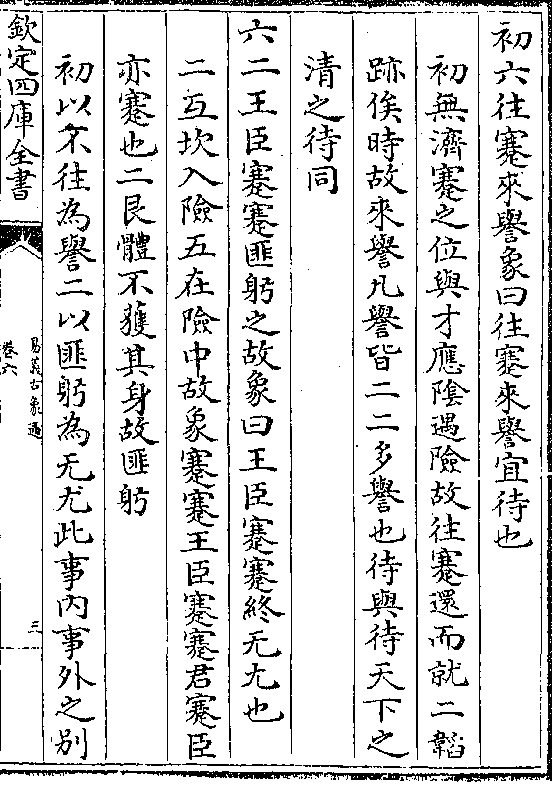 初六往蹇來譽象曰往蹇來譽宜待也
初無濟蹇之位與才應陰遇險故往蹇還而就二韜
跡俟時故來譽凡譽皆二二多譽也待與待天下之
清之待同
六二王臣蹇蹇匪躬之故象曰王臣蹇蹇終无尤也
二互坎入險五在險中故象蹇蹇王臣蹇蹇君蹇臣
亦蹇也二艮體不獲其身故匪躬
初以不往為譽二以匪躬為无尤此事内事外之别
欽定四庫全書
易義古象通
卷六
三